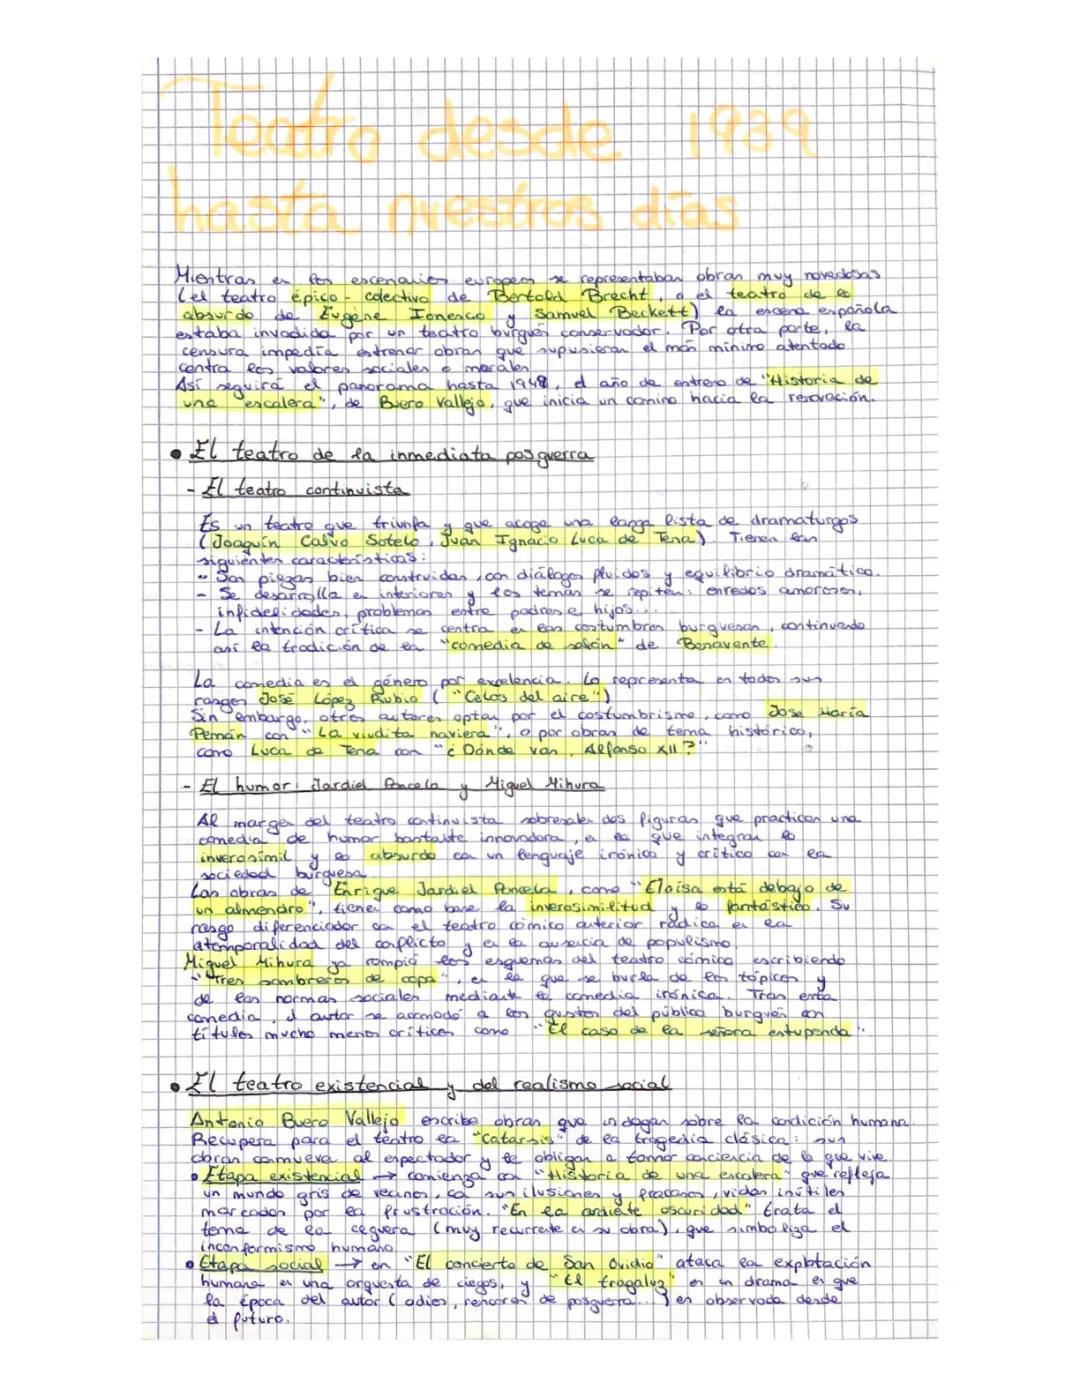 Teatro desde 1939
hasta nuestros días
Mientras en los escenarios europeos se representaban obras muy novedosas
(el teatro épico-colectivo de Bertold Brecht, o el teatro de lo
absurdo de Eugene Ionesco y Samuel Beckett) la escena española
estaba invadida por un teatro burgués conservador. Por otra parte, la
censura impedía estrenar obras que supusieran el más mínimo atentado
contra los valores sociales o morales.
Así seguirá el panorama hasta 1948, el año de estreno de "Historia de
una escalera", de Buero Vallejo, que inicia un camino hacia la renovación.
• El teatro de la inmediata posguerra
- El teatro continuista
Es un teatro que triunfa y que acoge una larga lista de dramaturgos
(Joaquín Calvo Sotelo, Juan Ignacio Luca de Tena). Tienen las
siguientes características:
- Son piezas bien construidas, con diálogos fluidos y equilibrio dramático.
- Se desarrolla en interiores y los temas se repiten: enredos amorosos,
infidelidades, problemas entre padres e hijos...
- La intención crítica se centra en las costumbres burguesas, continuando
así la tradición de la "comedia de salón" de Benavente.
La comedia es el género por excelencia. Lo representa en todos sus
rasgos José López Rubio ("Celos del aire")
Sin embargo, otros autores optan por el costumbrismo, como Jose María
Pemán con "La viudita naviera", o por obras de tema histórico,
como Luca de Tena con "¿Dónde vas, Alfonso XII?"
- El humor: Jardiel Poncela y Miguel Mihura
Al margen del teatro continuista sobresalen dos figuras que practican una
comedia de humor bastante innovadora, en la que integran lo
inverosímil y lo absurdo con un lenguaje irónico y crítico con la
sociedad burguesa.
Las obras de Enrique Jardiel Poncela, como "Eloisa está debajo de
un almendro", tienen como base la inverosimilitud y lo fantástico. Su
rasgo diferenciador con el teatro cómico anterior radica en la
atemporalidad del conflicto y en la ausencia de populismo.
Miguel Mihura ya rompió los esquemas del teatro cómico escribiendo
"Tres sombreros de copa", en la que se burla de los tópicos y
de las normas sociales mediante la comedia irónica. Tras esta
comedia, el autor se acomodó a los gustos del público burgués con
títulos mucho menos críticos como "El caso de la señora estupenda".
• El teatro existencial y del realismo social
Antonio Buero Vallejo escribe obras que indagan sobre la condición humana.
Recupera para el teatro la "Catarsis" de la tragedia clásica: sus
obras conmueven al espectador y le obligan a tomar conciencia de lo que vive.
• Etapa existencial → comienza con "Historia de una escalera" que refleja
un mundo gris de vecinos, con sus ilusiones y fracasos, vidas inútiles
marcadas por la frustración. "En la ardiente oscuridad" trata el
tema de la ceguera (muy recurrente en su obra), que simboliza el
inconformismo humano.
• Etapa social → en "El concierto de San Ovidio" ataca la explotación
humana en una orquesta de ciegos, y "El tragaluz" es un drama en que
la época del autor (odios, rencores de posguerra...) es observada desde
el futuro.